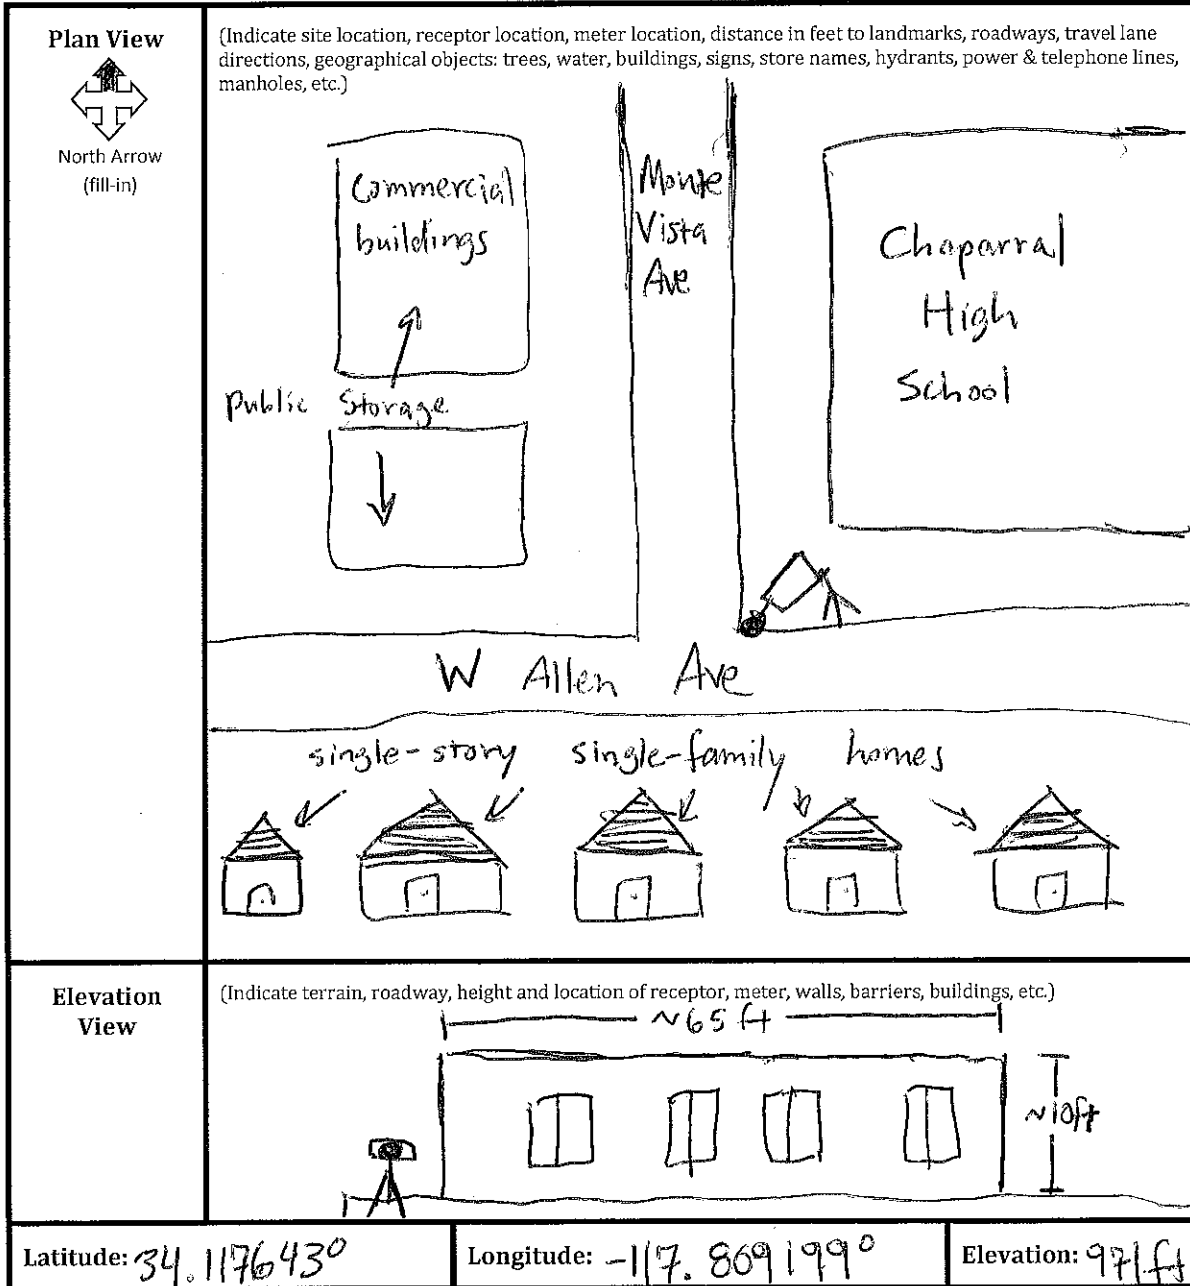 Plan View
North Arrow
(fill-in)
(Indicate site location, receptor location, meter location, distance in feet to landmarks, roadways, travel lane
directions, geographical objects: trees, water, buildings, signs, store names, hydrants, power & telephone lines,
manholes, etc.)
Commercial
buildings
Monte
Vista
Ave
Chaparral
High
School
Public Storage
W Allen Ave
single-story single-family homes
Elevation
View
(Indicate terrain, roadway, height and location of receptor, meter, walls, barriers, buildings, etc.)
~65 ft
~10ft
Latitude: 34.117643°
Longitude: -117.869199°
Elevation: 971 ft